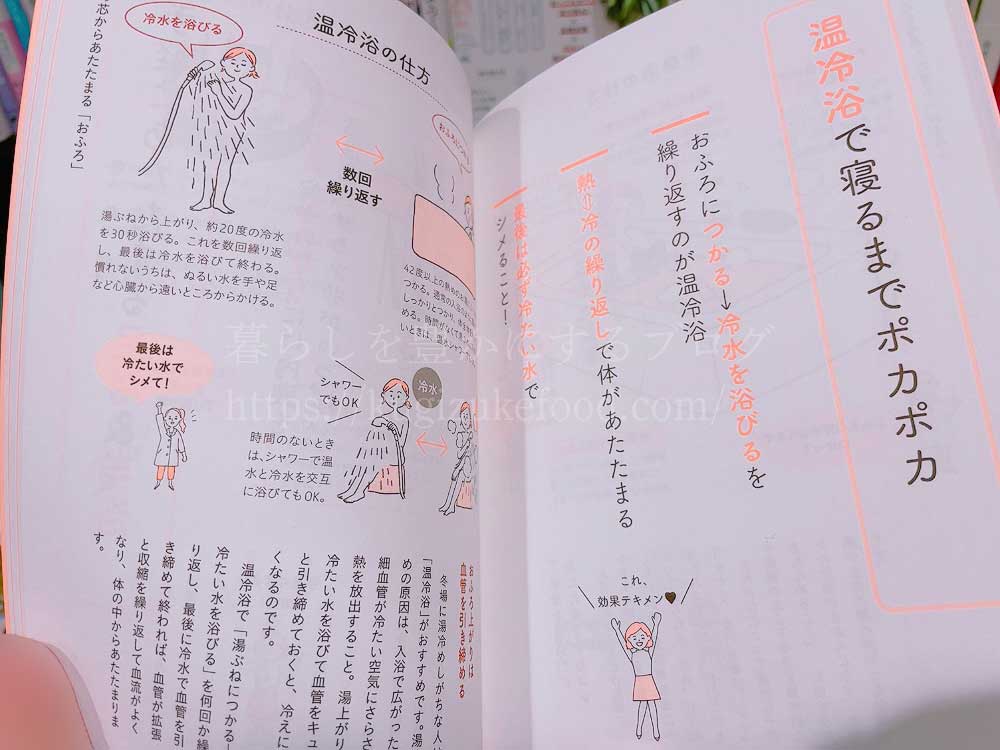 温冷浴で寝るまでポカポカ
おふろにつかる→冷水を浴びるを
繰り返すのが温冷浴
熱⇔冷の繰り返しで体があたたまる
最後は必ず冷たい水で
シメること!
これ、
効果テキメン♥
芯からあたたまる「おふろ」
温冷浴の仕方
冷水を浴びる
数回
繰り返す
湯ぶねから上がり、約20度の冷水
を30秒浴びる。これを数回繰り返
し、最後は冷水を浴びて終わる。
慣れないうちは、ぬるい水を手や足
など心臓から遠いところからかける。
42度以上の熱めのお
つかる。通常の入浴
しっかりとつかり、体
める。時間がなくて
いときは、
最後は
冷たい水で
シメて!
シャワー
でもOK
冷水
時間のないとき
は、シャワーで温
水と冷水を交互
に浴びてもOK。
おふろ上がりは
血管を引き締める
冬場に湯冷めしがちな人は
「温冷浴」がおすすめです。湯
めの原因は、入浴で広がった
細血管が冷たい空気にさらさ
熱を放出すること。湯上がり
冷たい水を浴びて血管をキュ
と引き締めておくと、冷えに
くくなるのです。
温冷浴で「湯ぶねにつかる→
冷たい水を浴びる」を何回か繰
り返し、最後に冷水で血管を引
き締めて終われば、血管が拡張
と収縮を繰り返して血流がよく
なり、体の中からあたたまりま
す。
暮らしを豊かにするブログ